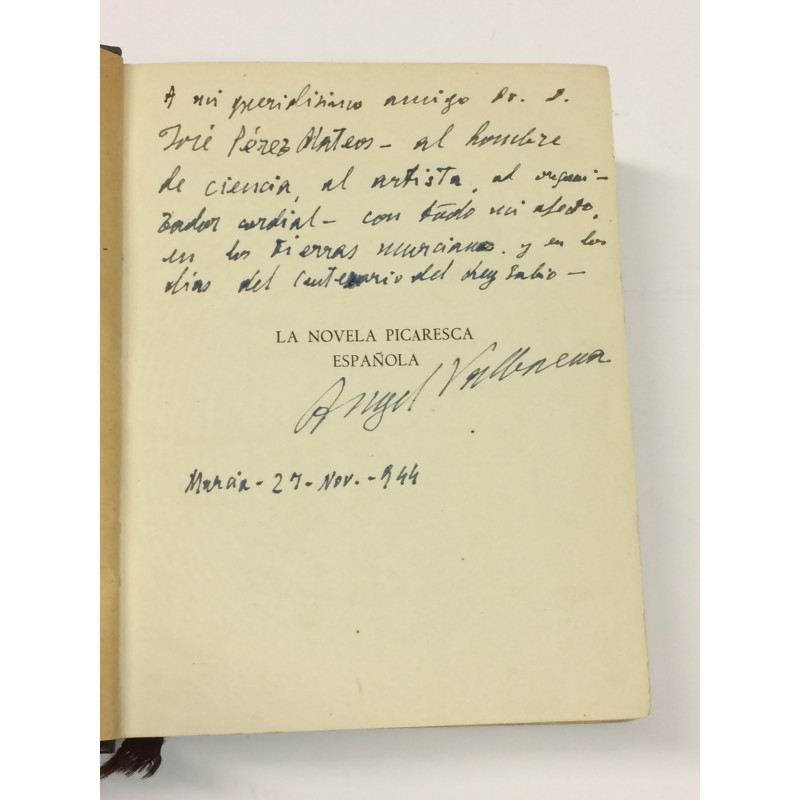 A mi queridisimo amigo Dr. D.
José Pérez Mateos - al hombre
de ciencia, al artista, al organi-
zador cordial - con tödo mi afecto,
en las tierras murcianas. y en los
días del Centenario del Rey Sabio -
LA NOVELA PICARESCA
ESPAÑOLA
Angel Valbuena
Murcia - 27 - Nov. - 944